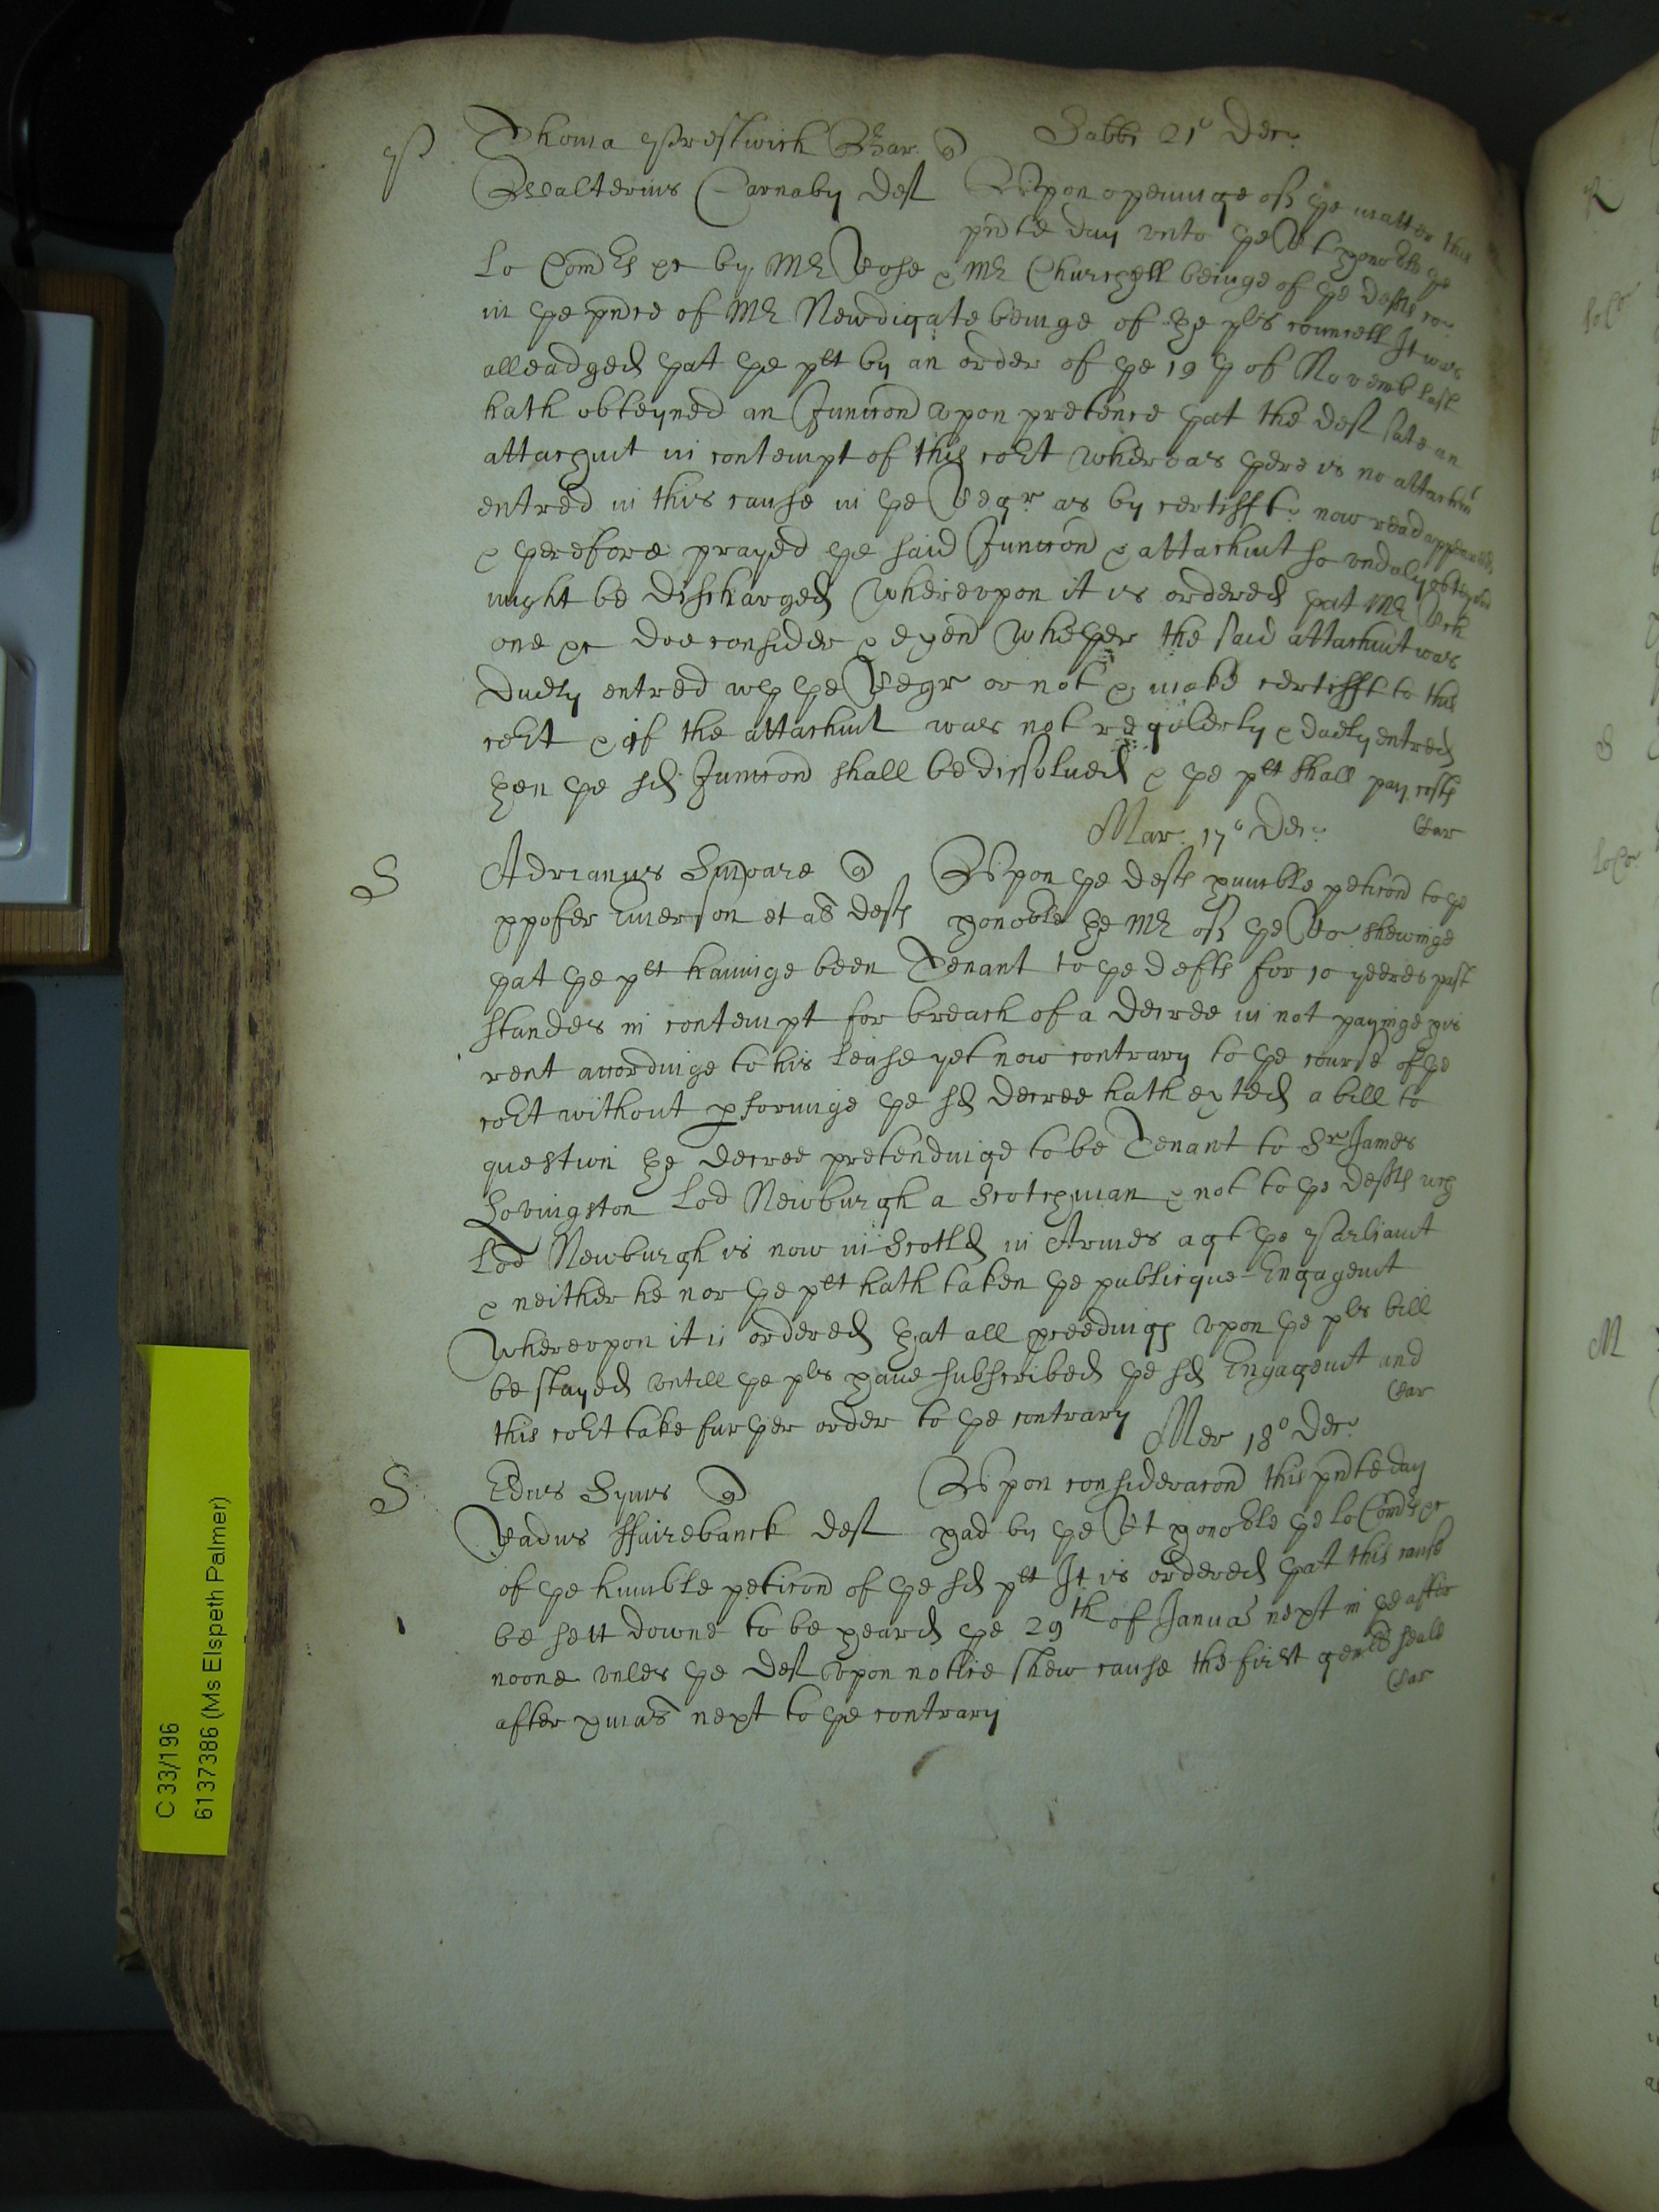 P
Thoma Prestwich Bar. Sabbi 21° Decr
Walterius Carnaby Deft Upon openinge of ye matter this
pnte day unto ye Rt honoble ye
Lo Comrs &c by Mr Rose & Mr Churchyll beinge of ye Defts co
in ye pnce of Mr Newdigate beinge of ye plts councell It was
alleadged yat ye plt by an order of ye 19 th of Novemb last
hath obteyned an Iuncon upon pretence yat the Deft sate an
attachmt in contempt of this cort whereas yere is no attachmt
entred in this cause in ye Regr as by certifft now read appeareth
& yerefore prayed ye said Iuncon & attachmt so unduly obteyned
might be discharged Whereupon it is ordered yat Mr
one &c doe consider & exend Whether the said attachmt was
Duely entred wth ye Regr or not & make certifft to this
cort & if the attachmt was not regulerly & duely entred
then ye sd Iuncon shall be dissolved & ye plt shall pay costs
Mar. 17° Dec
S
Adrianus Smpare Upon ye Defts humble peticon to ye
ppofer Emerson et als Defts honoble the Mr of ye Ro shewinge
yat ye plt havinge been Tenant to ye Defts for 10 yeeres past
standes in contempt for breach of a Decree in not payinge his
rent accordinge to his Lease yet now contrary to ye course of ye
cort without pforminge ye sd decree hath exted a bill to
question the decree pretendinge to be Tenant to Sr James
Lovingston Lod Newburgh a Scotchman & not to ye Defts wch
Lod Newburgh is now in Scotld in Armes agt ye Parliamt
& neither he nor ye plt hath taken ye publicque Engagemt
Whereupon it is ordered that all pceedings upon ye plts bill
be stayed untill ye plts have subscribed ye sd Engagemt and
this cort take further order to ye contrary
Mer 18° Decr
S
Edus Syms Upon consideracon this pnte day
Radus ffairebanck Deft had by ye Rt honoble ye Lo Comrs &c
of ye humble peticon of ye sd plt It is ordered yat this cause
be sett downe to be heard ye 29th of Januar next in ye after
noone unles ye Deft upon notice shew cause the first gen'll seale
after xmas next to ye contrary
C 33/196
6137386 (Ms Elspeth Palmer)